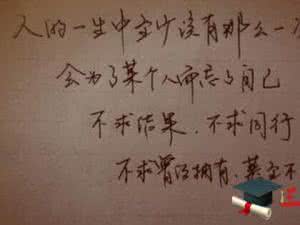 人的一生中至少该有那么一
会为了某个人而忘了自己
不求结果、不求同行
不求曾经拥有、甚至不